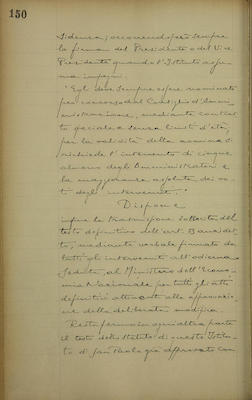 150
sidenza; occorrendo però sempre
la firma del Presidente o del Vice
Presidente quando l'Istituto assu-
ma impegni.
"Egli deve sempre essere nominato
per concorso dal Consiglio d'Ammi-
nistrazione, mediante contrat-
to speciale e senza limiti d'età;
per la validità della nomina si
richiede l'intervento di cinque
almeno degli Amministratori e
la maggioranza assoluta dei vo-
ti degli intervenuti."
Dispone
infine la trasmissione del
testo definitivo dell'art.
to, mediante verbale firmato da
tutti gli intervenuti all'odierna
seduta, al Ministero dell'Econo-
mia Nazionale per tutti gli atti
definitivi attinenti alla approvazio-
ne della deliberata modifica.
Resta fermo in ogni altra parte
il testo dello Statuto di questo Istitu-
to di San Paolo già approvato con